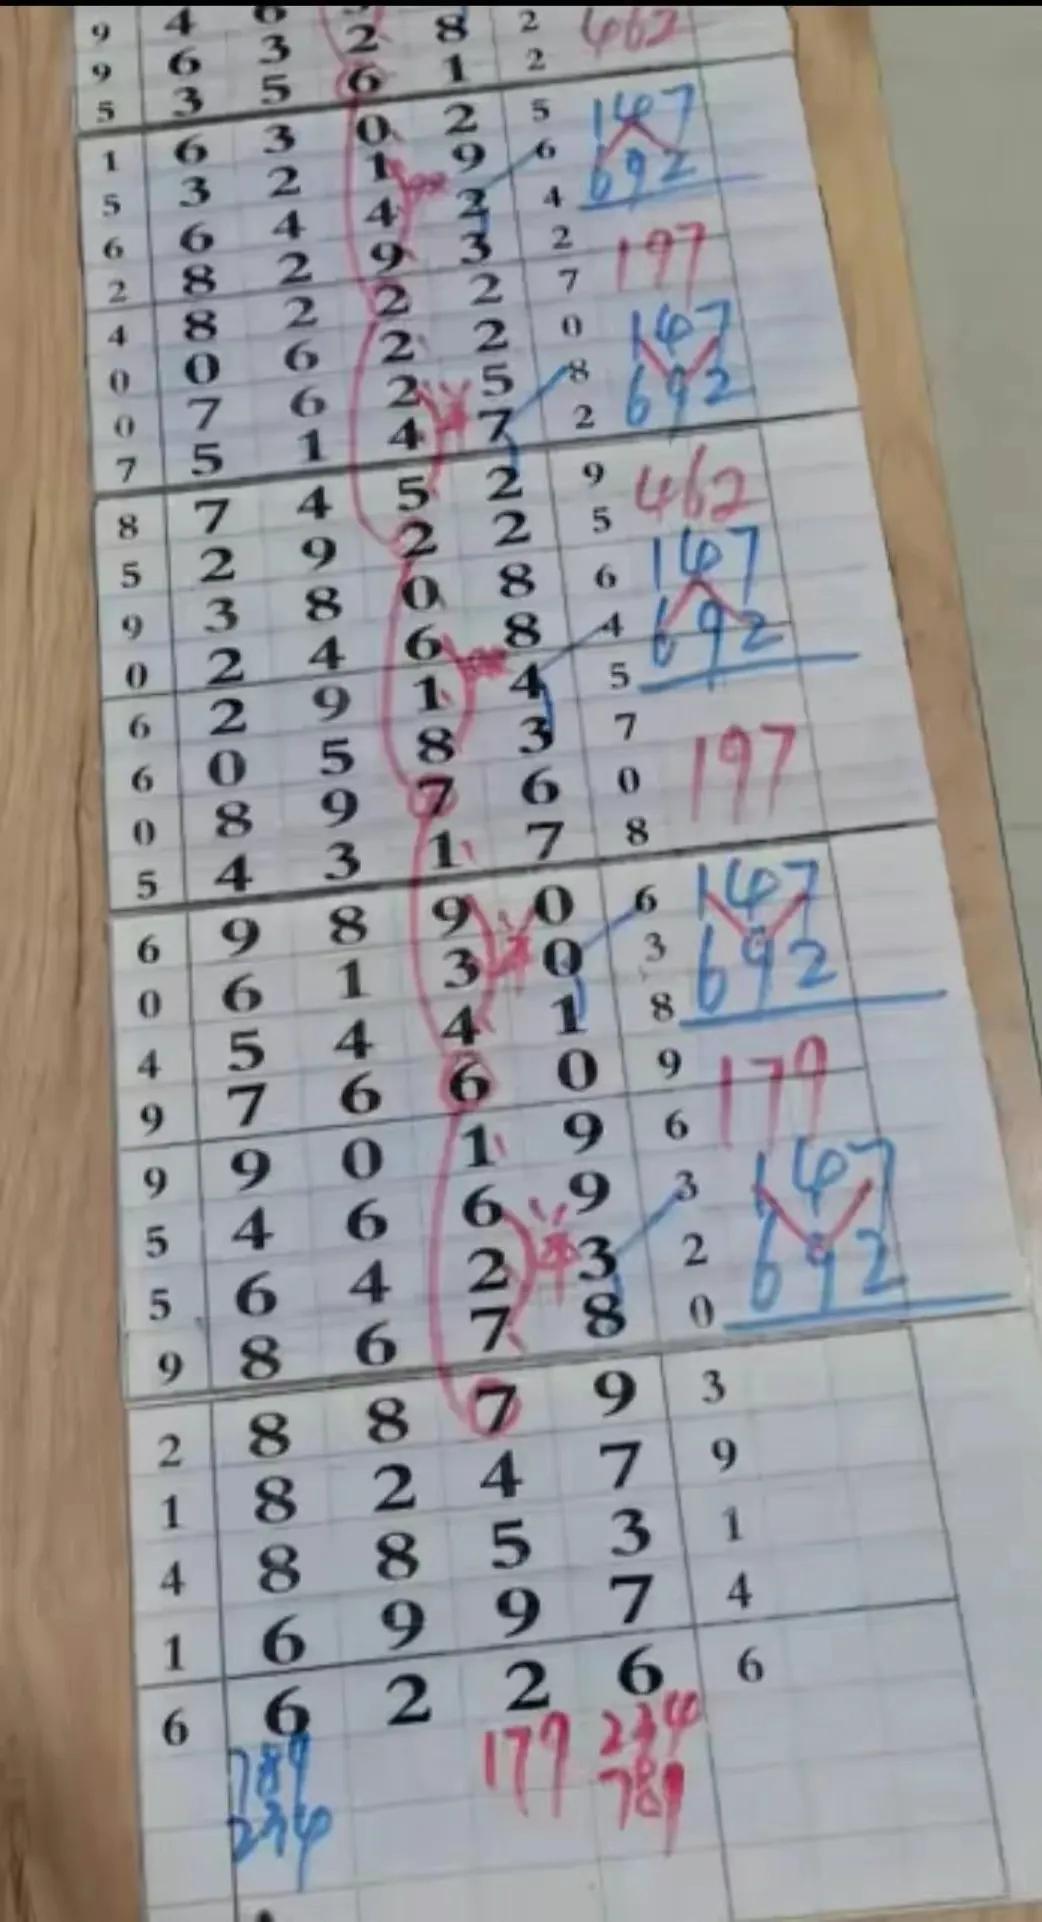 9 4 6
9 6 3 2 8 2 462
5 3 5 6 1 2
1 6 3 0 2 5 147
5 3 2 1 9 6 692
6 6 4 4 2 4
2 8 2 9 3 2 197
4 8 2 2 2 7
0 0 6 2 2 0 147
0 7 6 2 5 8 692
7 5 1 4 7 2
8 7 4 5 2 9 462
5 2 9 2 2 5
9 3 8 0 8 6 147
0 2 4 6 8 4 692
6 2 9 1 4 5
6 0 5 8 3 7
0 8 9 7 6 0 197
5 4 3 1 7 8
6 9 8 9 0 6 147
0 6 1 3 0 3 692
4 5 4 4 1 8
9 7 6 6 0 9 179
9 9 0 1 9 6
5 4 6 6 9 3 147
5 6 4 2 3 2 692
9 8 6 7 8 0
2 8 8 7 9 3
1 8 2 4 7 9
4 8 8 5 3 1
1 6 9 9 7 4
6 6 2 2 6 6
789 179 234
234 789